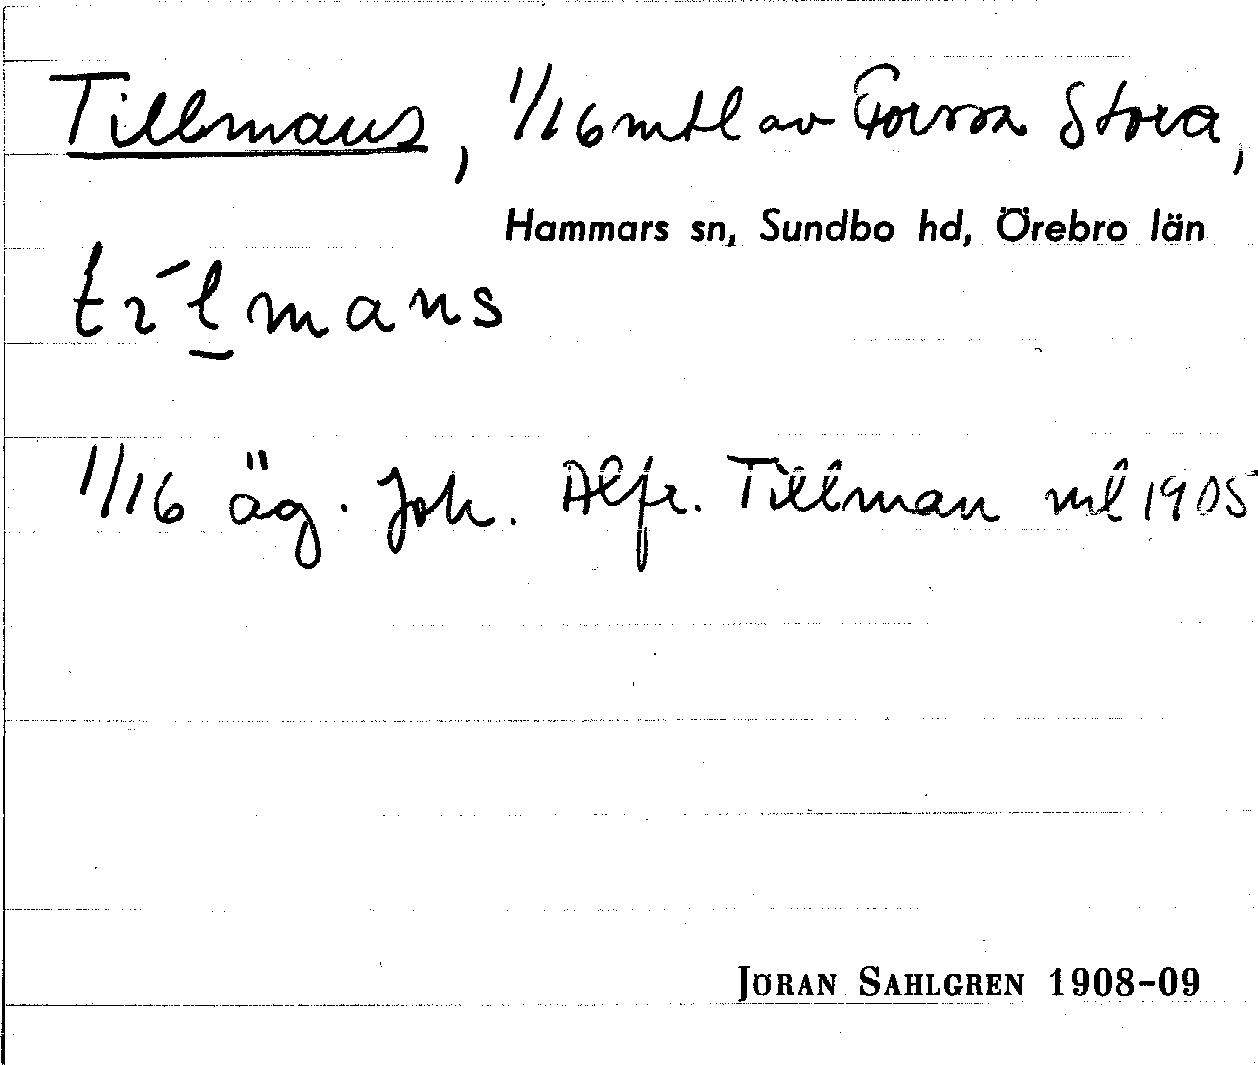 Tillmans, 1/16 mtl av Forsa Stora,
Hammars sn, Sundbo hd, Örebro län
1/16 äg. Joh. Alfr. Tillman ml 1905
JÖRAN SAHLGREN 1908-09